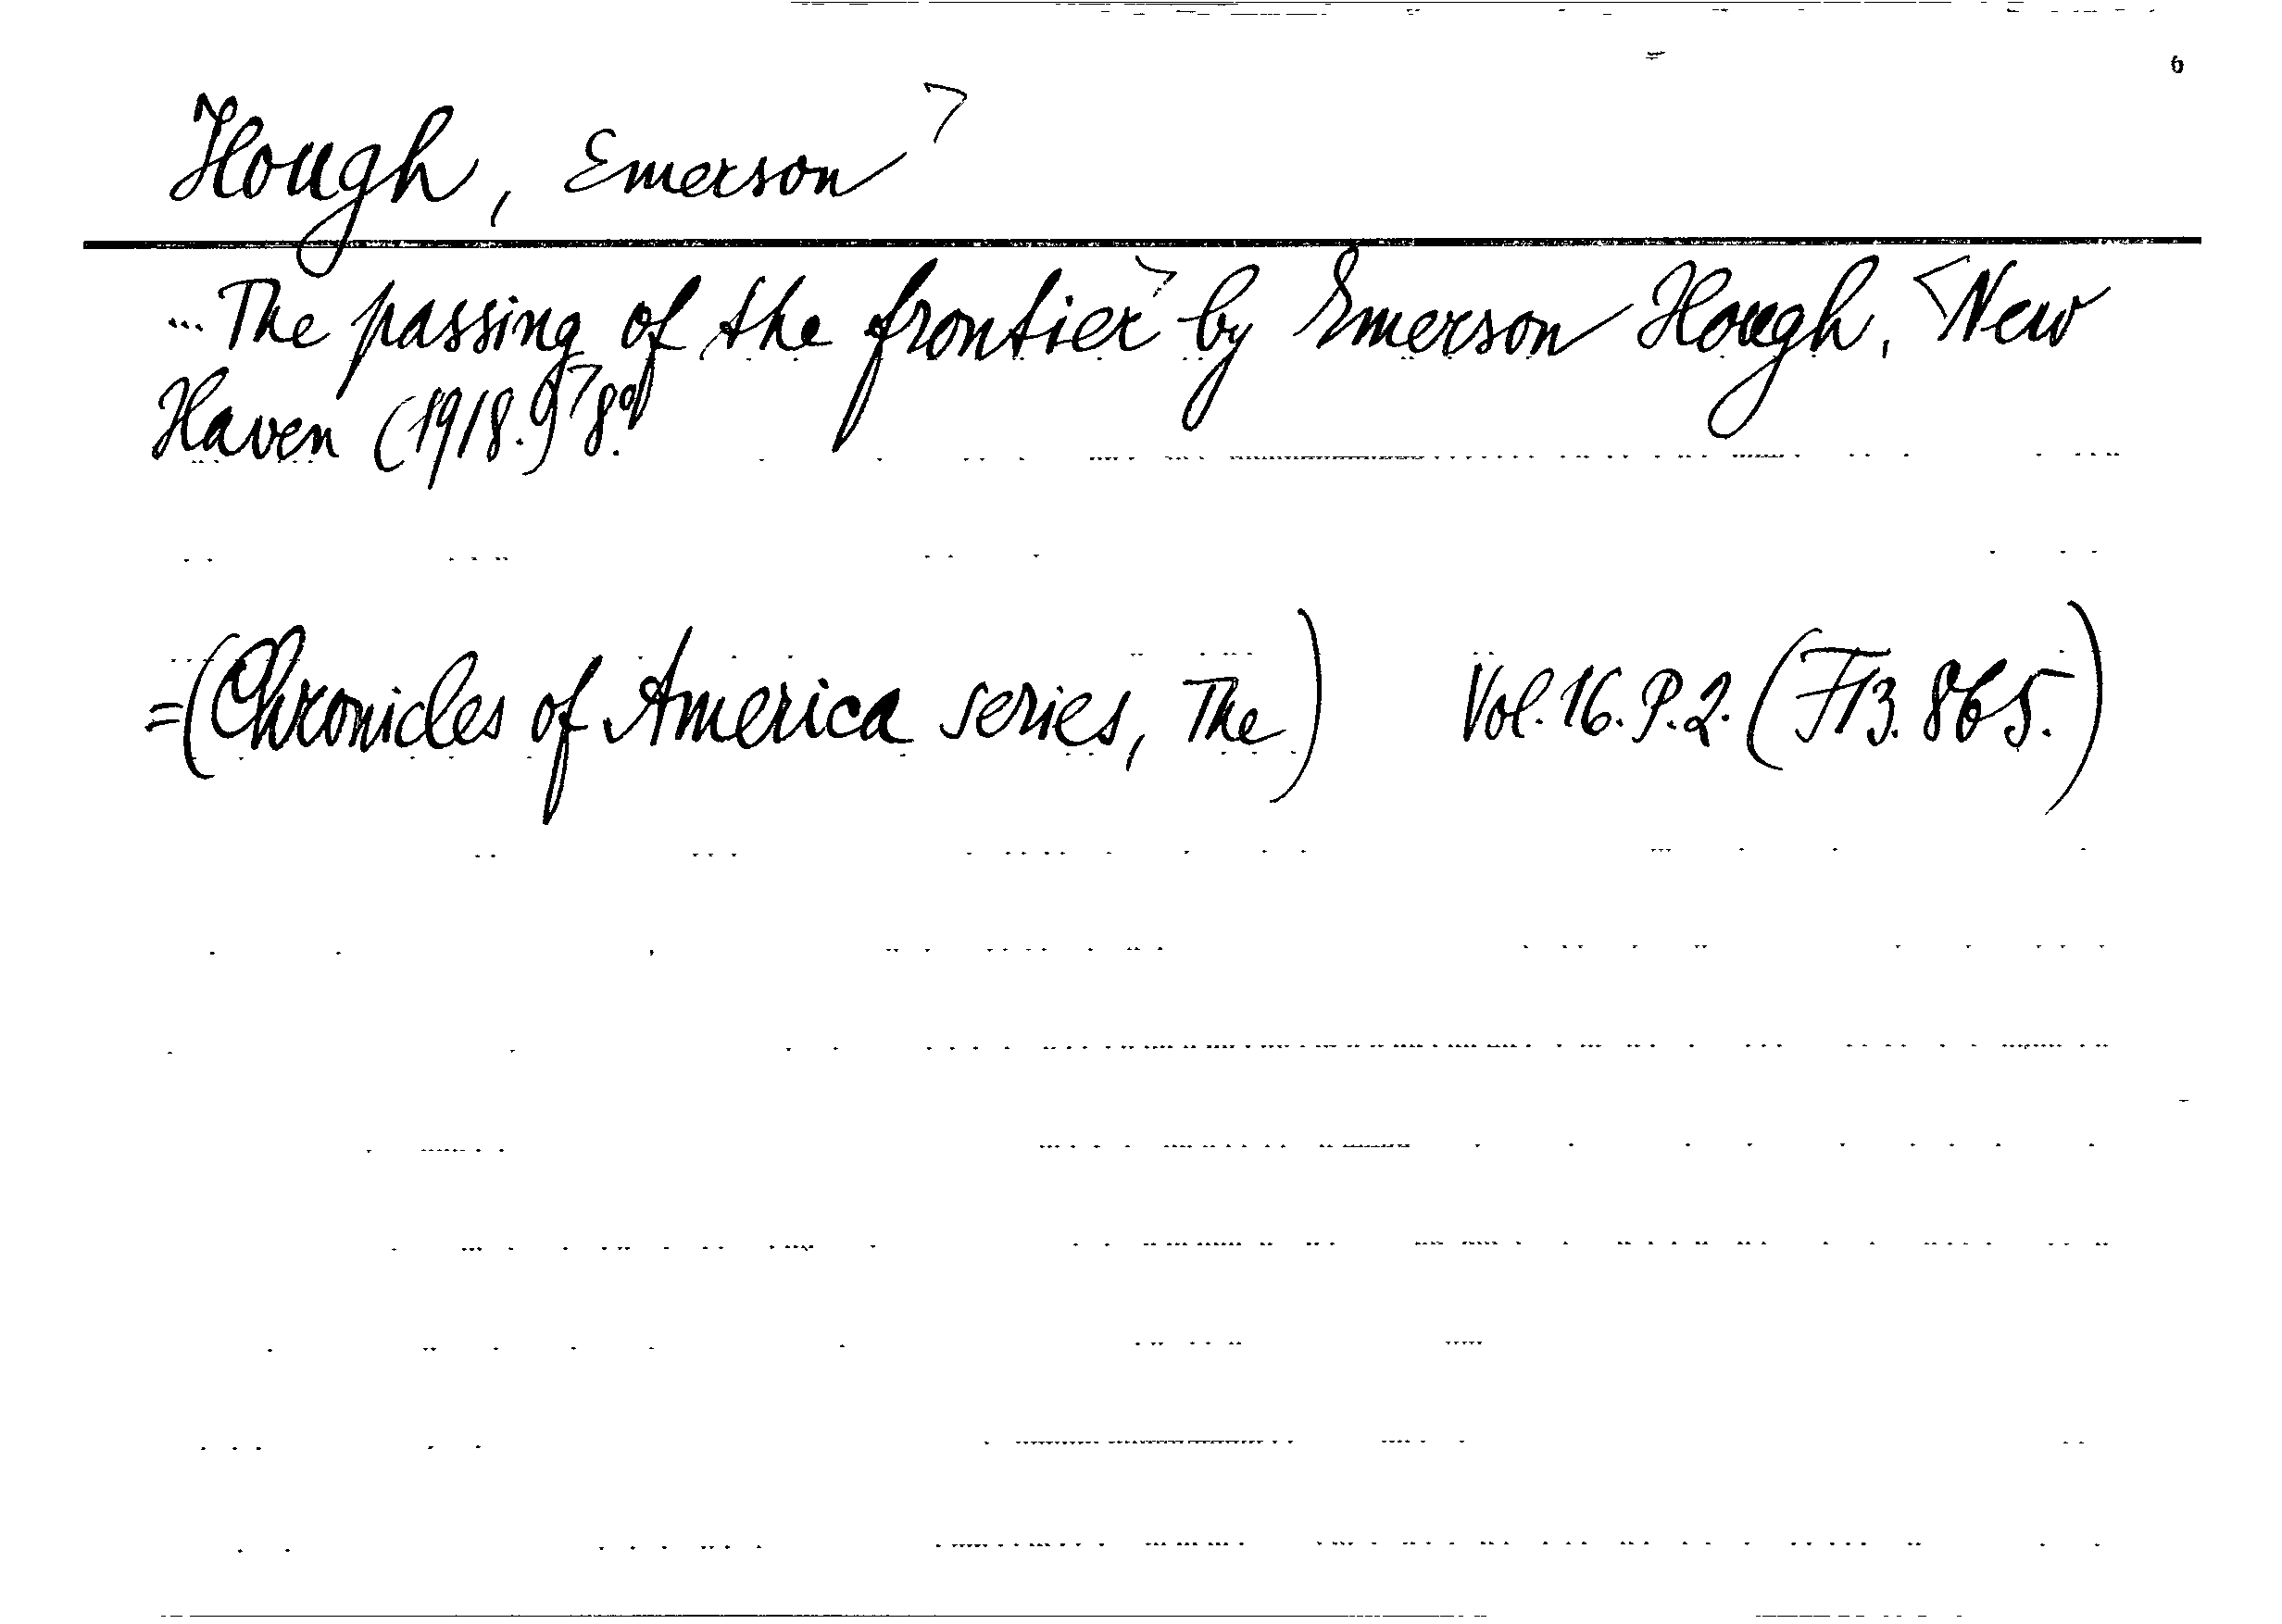 6
Hough, Emerson⁊
... The passing of the frontier⁊ by Emerson Hough, <New
Haven (1918.)⁊ 8º.
=(Chronicles of America series, The) Vol. 16. P. 2. (F13. 865.)